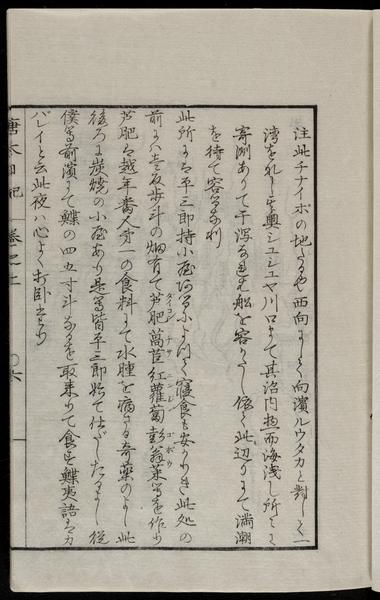 注此チナイホの地たるや西向にして向濱ルウタカと對して一
湾をなし其奥シユシユヤ川口まて其沼内惣而海浅し所々に
寄洲ありて干泻なれは船を容かたし依て此辺りまて満潮
を待て容るなり
此所にハ平三郎持小屋有るによつて寝食も安かりき此処の
前にハ壱反歩斗の畑有て芦肥萵苣紅蘿蔔彭翁菜等を作り
ダイコン チサ ニンジン ゴボウ
芦肥ハ越年番人第一の食料にて水腫を病さる奇薬のよし此
後ろに炭焼の小屋あり是等皆平三郎始て仕だしたるよし従
僕等前濱にて鰈の四五寸斗なるを取来りて食す鰈夷語ニカ
バレイと云此夜ハ心よく打臥したり
唐太日記 巻之上 〇六